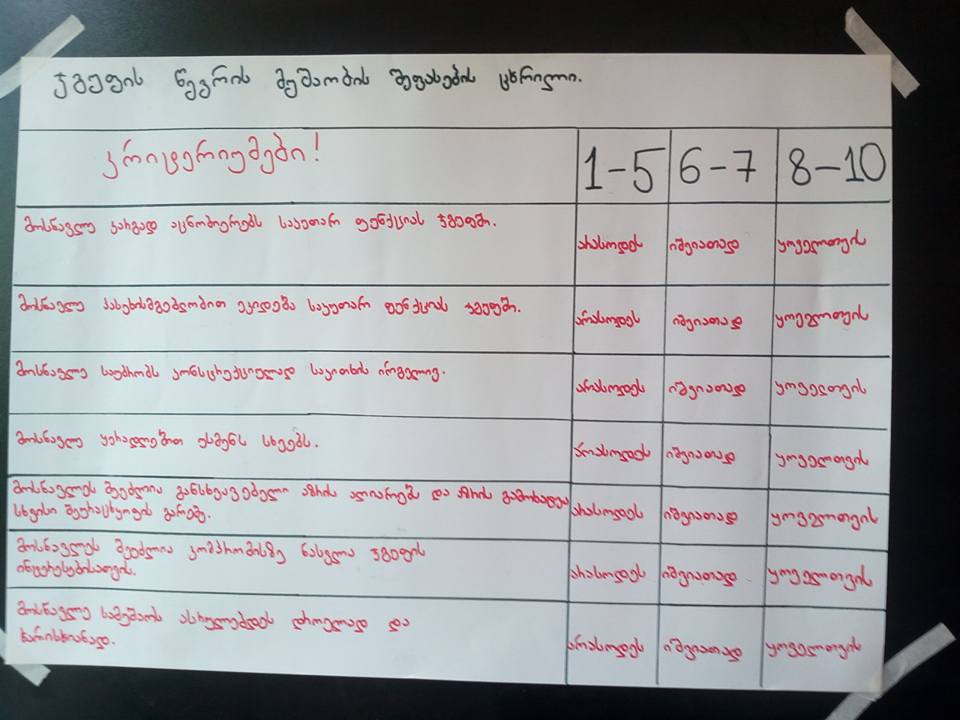 ჯგუფის წევრის მუშაობის შეფასების ცხრილი.
კრიტერიუმები! 1-5 6-7 8-10
მოსწავლე კარგად აცნობიერებს საკუთარ ფუნქციას ჯგუფში. არასოდეს იშვიათად ყოველთვის
მოსწავლე პასუხისმგებლობით ეკიდება საკუთარ ფუნქციას ჯგუფში. არასოდეს იშვიათად ყოველთვის
მოსწავლე საუბრობს კონსტრუქციულად საკითხის ირგვლივ. არასოდეს იშვიათად ყოველთვის
მოსწავლე ყურადღებით უსმენს სხვებს. არასოდეს იშვიათად ყოველთვის
მოსწავლეს შეუძლია განსხვავებული აზრის აღიარება და აზრის გამოხატვა
სხვისი შეურაცხყოფის გარეშე. არასოდეს იშვიათად ყოველთვის
მოსწავლეს შეუძლია კომპრომისზე წასვლა ჯგუფის
ინტერესებისათვის. არასოდეს იშვიათად ყოველთვის
მოსწავლე სამუშაოს ასრულებდეს დროულად და
ხარისხიანად. არასოდეს იშვიათად ყოველთვის